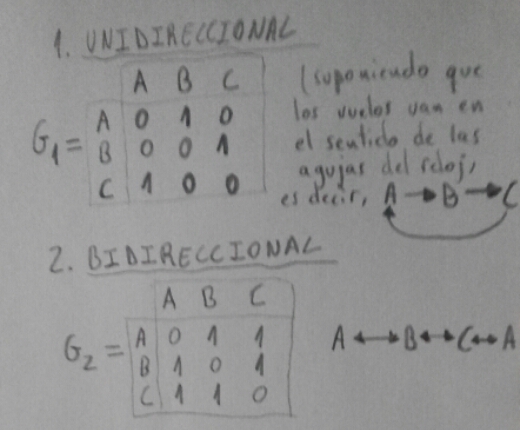 1. UNIDIRECCIONAL
A B C
G1 =
A 0 1 0
B 0 0 1
C 1 0 0
(suponiendo que
los vuelos van en
el sentido de las
agujas del reloj,
es decir, A → B → C
2. BIDIRECCIONAL
A B C
G2 =
A 0 1 1
B 1 0 1
C 1 1 0
A ↔ B ↔ C ↔ A